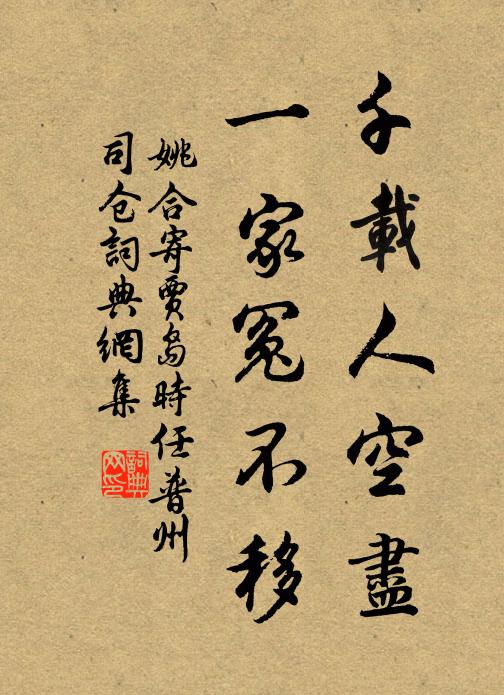 千載人空盡
一家冤不移
姚合寄賈島時任普州
司仓詞典網集
詞典网印